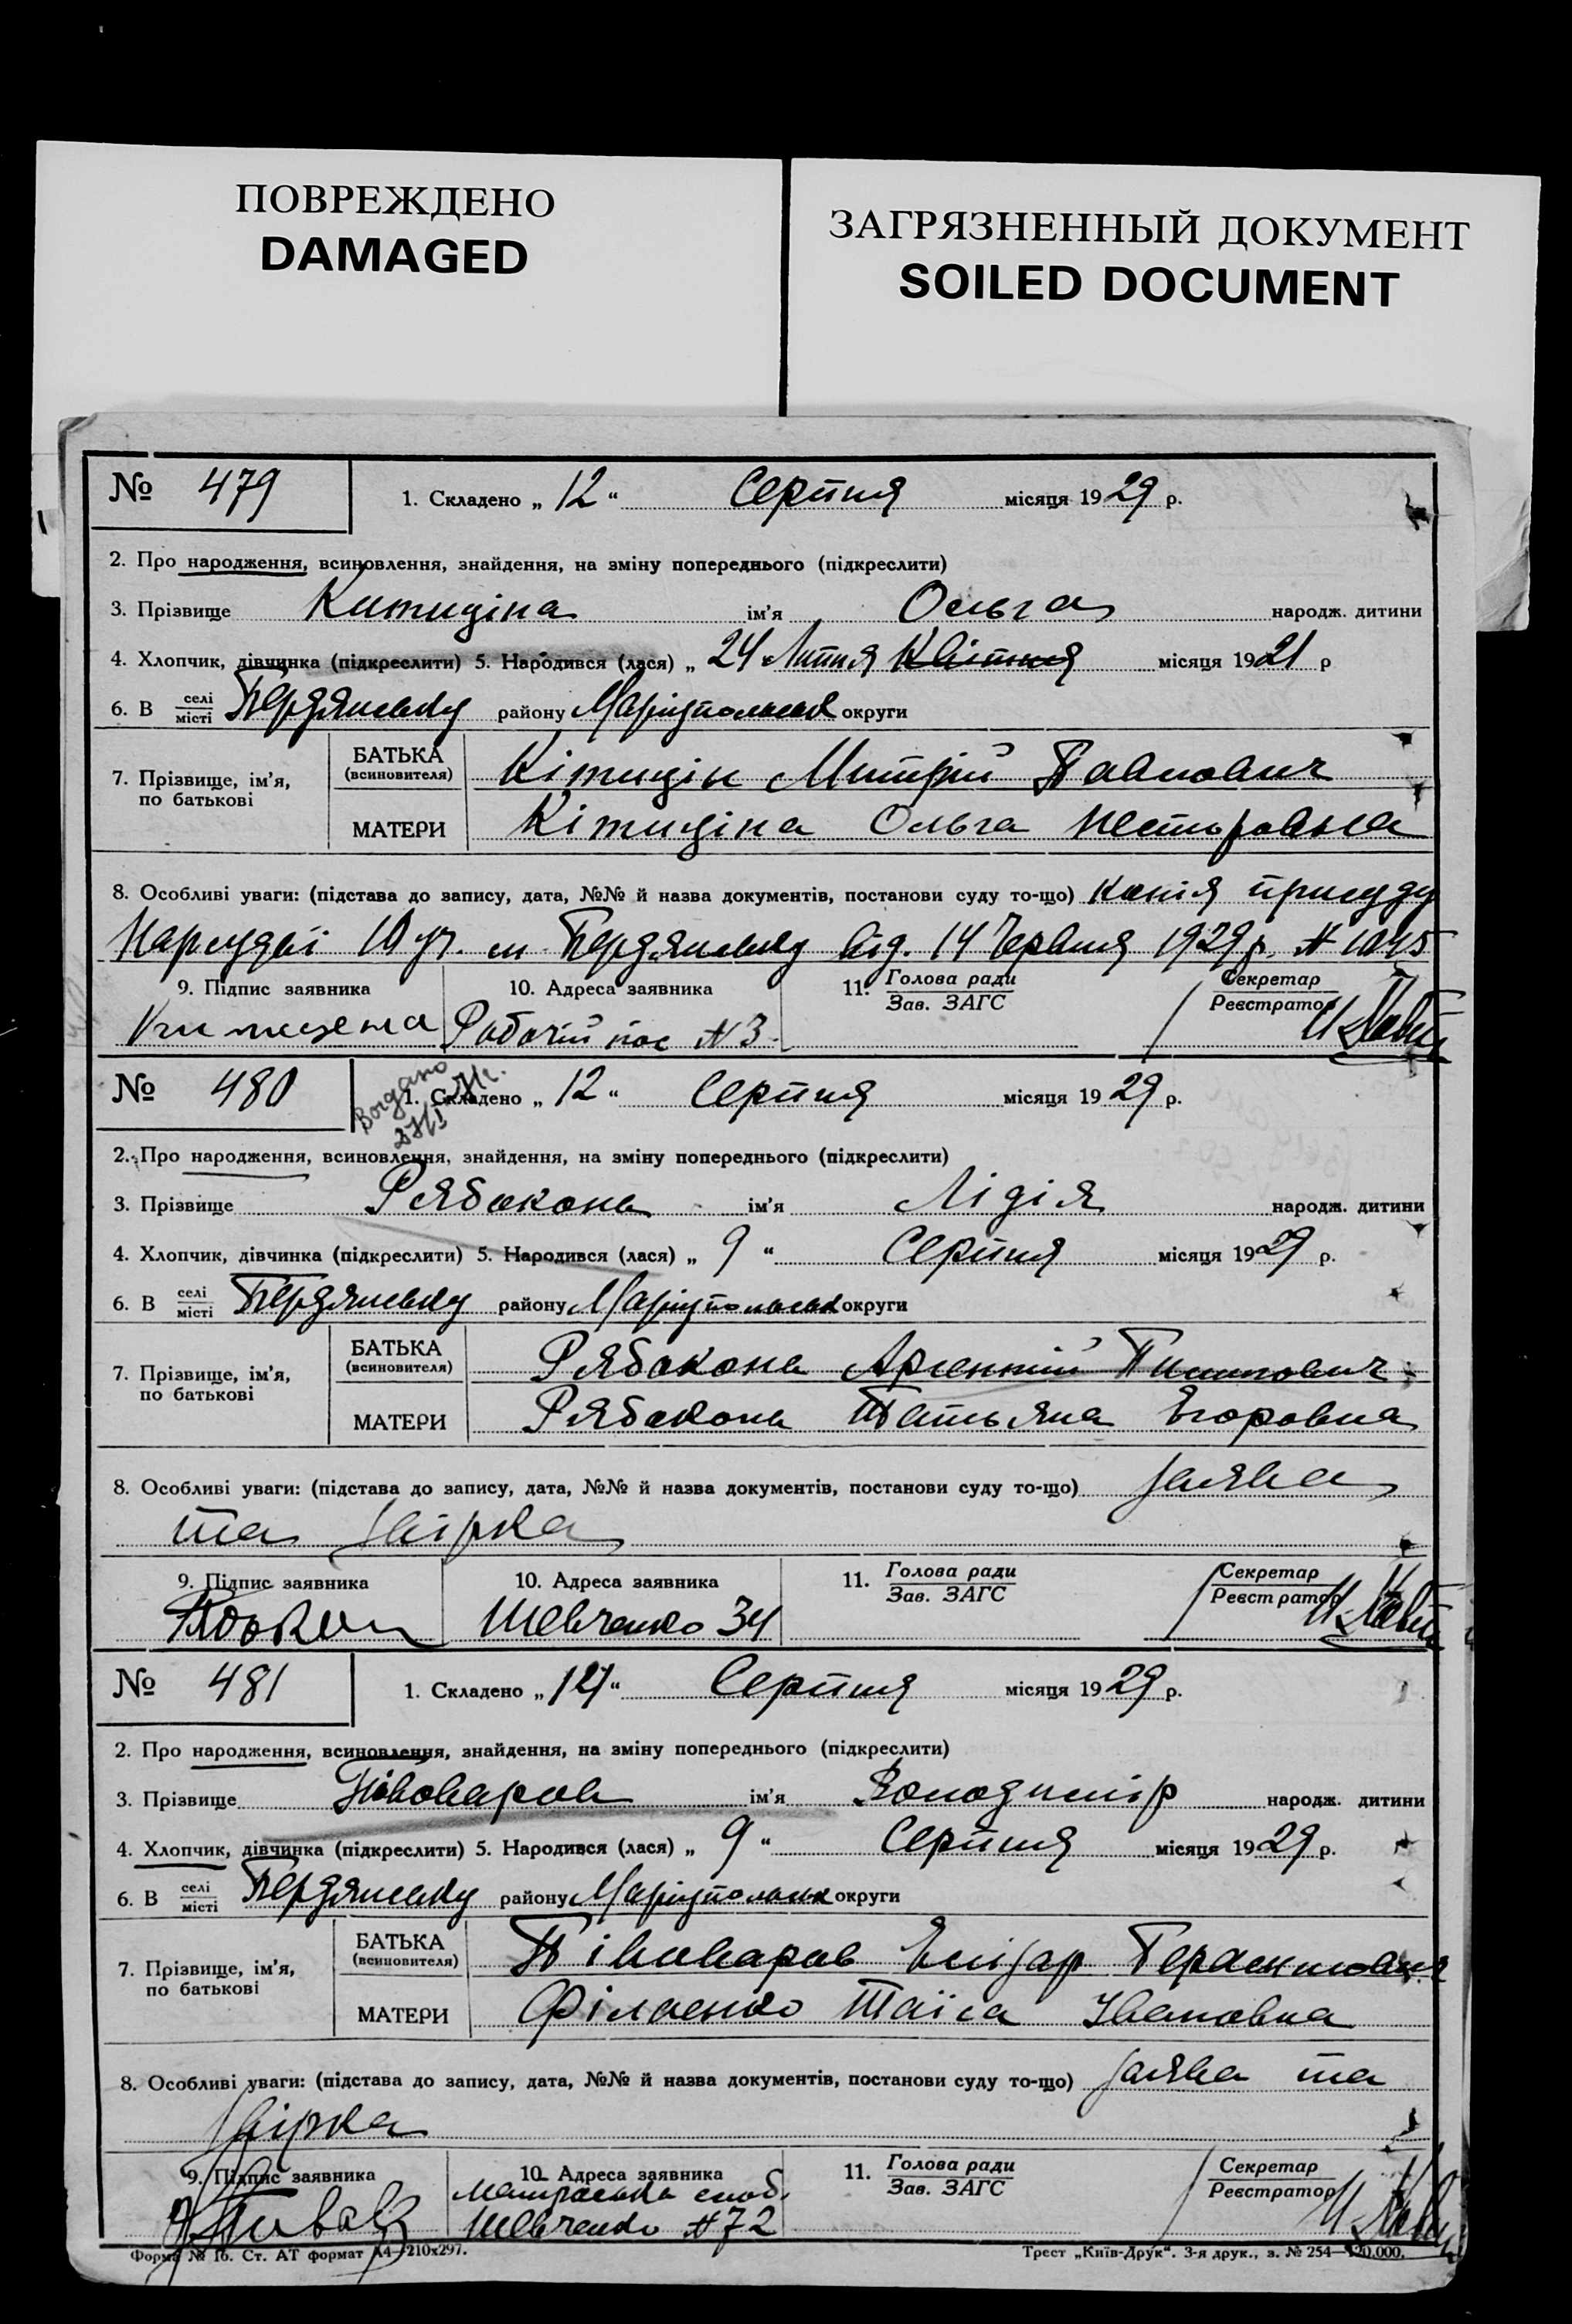 ПОВРЕЖДЕНО
DAMAGED
ЗАГРЯЗНЕННЫЙ ДОКУМЕНТ
SOILED DOCUMENT
№ 479
1. Складено „ 12 “ Серпня місяця 1929 р.
2. Про народження, всиновлення, знайдення, на зміну попереднього (підкреслити)
3. Прізвище Китиціна ім’я Ольга народж. дитини
4. Хлопчик, дівчинка (підкреслити) 5. Народився (лася) „ 24 “ Липня Квітня місяця 1921 р
6. В селі місті Бердянську району Маріупольськ округи
7. Прізвище, ім’я, по батькові
БАТЬКА (всиновителя) Кітицін Митрій Павлович
МАТЕРИ Кітиціна Ольга Несторовна
8. Особливі уваги: (підстава до запису, дата, №№ й назва документів, постанови суду то-що) Копія присуду
Нарсудді 10 уч. м Бердянську від. 14 Червня 1929 р. № 1045
9. Підпис заявника
10. Адреса заявника Робочій пос № 3
11. Голова ради Зав. ЗАГС
Секретар Реєстратор
№ 480
1. Складено „ 12 “ Серпня місяця 1929 р.
2. Про народження, всиновлення, знайдення, на зміну попереднього (підкреслити)
3. Прізвище Рябоконь ім’я Лідія народж. дитини
4. Хлопчик, дівчинка (підкреслити) 5. Народився (лася) „ 9 “ Серпня місяця 1929 р.
6. В селі місті Бердянську району Маріупольськ округи
7. Прізвище, ім’я, по батькові
БАТЬКА (всиновителя) Рябоконь Арсентій
МАТЕРИ Рябоконь Татьяна Егоровна
8. Особливі уваги: (підстава до запису, дата, №№ й назва документів, постанови суду то-що) Заява
та Звірка
9. Підпис заявника
10. Адреса заявника Шевченко 34
11. Голова ради Зав. ЗАГС
Секретар Реєстратор
№ 481
1. Складено „ 12 “ Серпня місяця 1929 р.
2. Про народження, всиновлення, знайдення, на зміну попереднього (підкреслити)
3. Прізвище Півоваров ім’я Володимір народж. дитини
4. Хлопчик, дівчинка (підкреслити) 5. Народився (лася) „ 9 “ Серпня місяця 1929 р.
6. В селі місті Бердянську району Маріупольськ округи
7. Прізвище, ім’я, по батькові
БАТЬКА (всиновителя) Півоваров Елізар Герасимович
МАТЕРИ Філаенко Таїса Івановна
8. Особливі уваги: (підстава до запису, дата, №№ й назва документів, постанови суду то-що) Заява та
Звірка
9. Підпис заявника
10. Адреса заявника
Шевченко № 72
11. Голова ради Зав. ЗАГС
Секретар Реєстратор
Форма № 1б. Ст. АТ формат А4—210х297.
Трест „Київ-Друк“. 3-я друк., з. № 254—120.000.